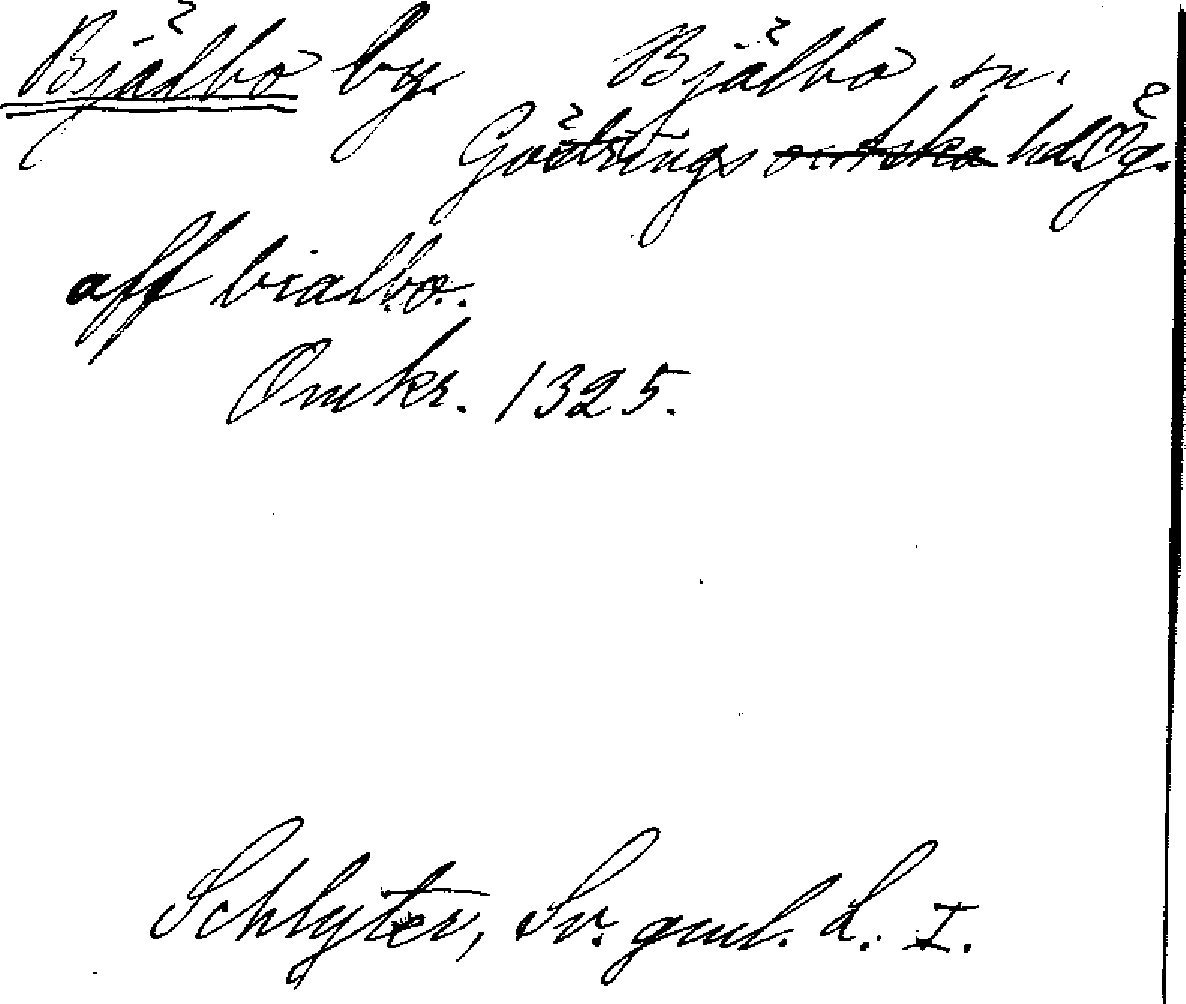 Bjälbo by. Bjälbo sn.
Göstrings hd. Ög.
aff bialbo.
Omkr. 1325.
Schlyter, Sv. gml. L. I.